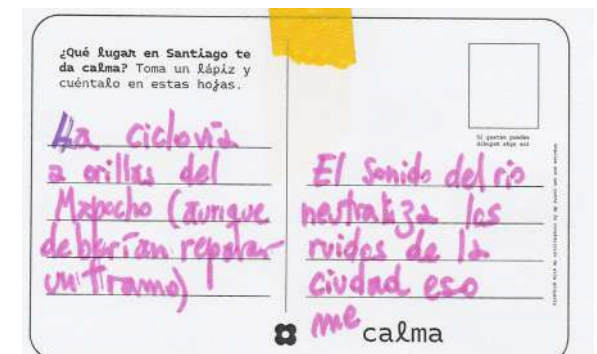 ¿Qué lugar en Santiago te
da calma? Toma un lápiz y
cuéntalo en estas hojas.
La ciclovía
a orillas del
Mapocho (aunque
deberían reparar
un tramo)
Si gustas puedes
dibujar algo acá
El sonido del rio
neutraliza los
ruidos de la
ciudad eso
me calma